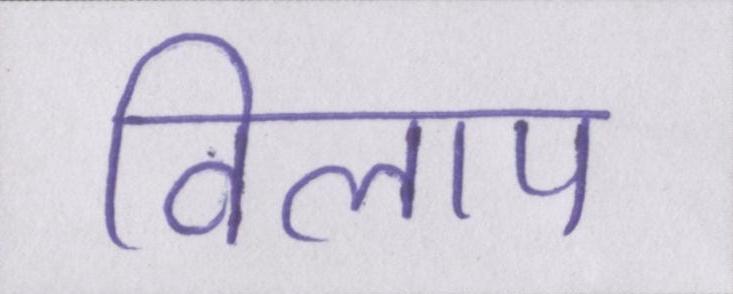 विलाप